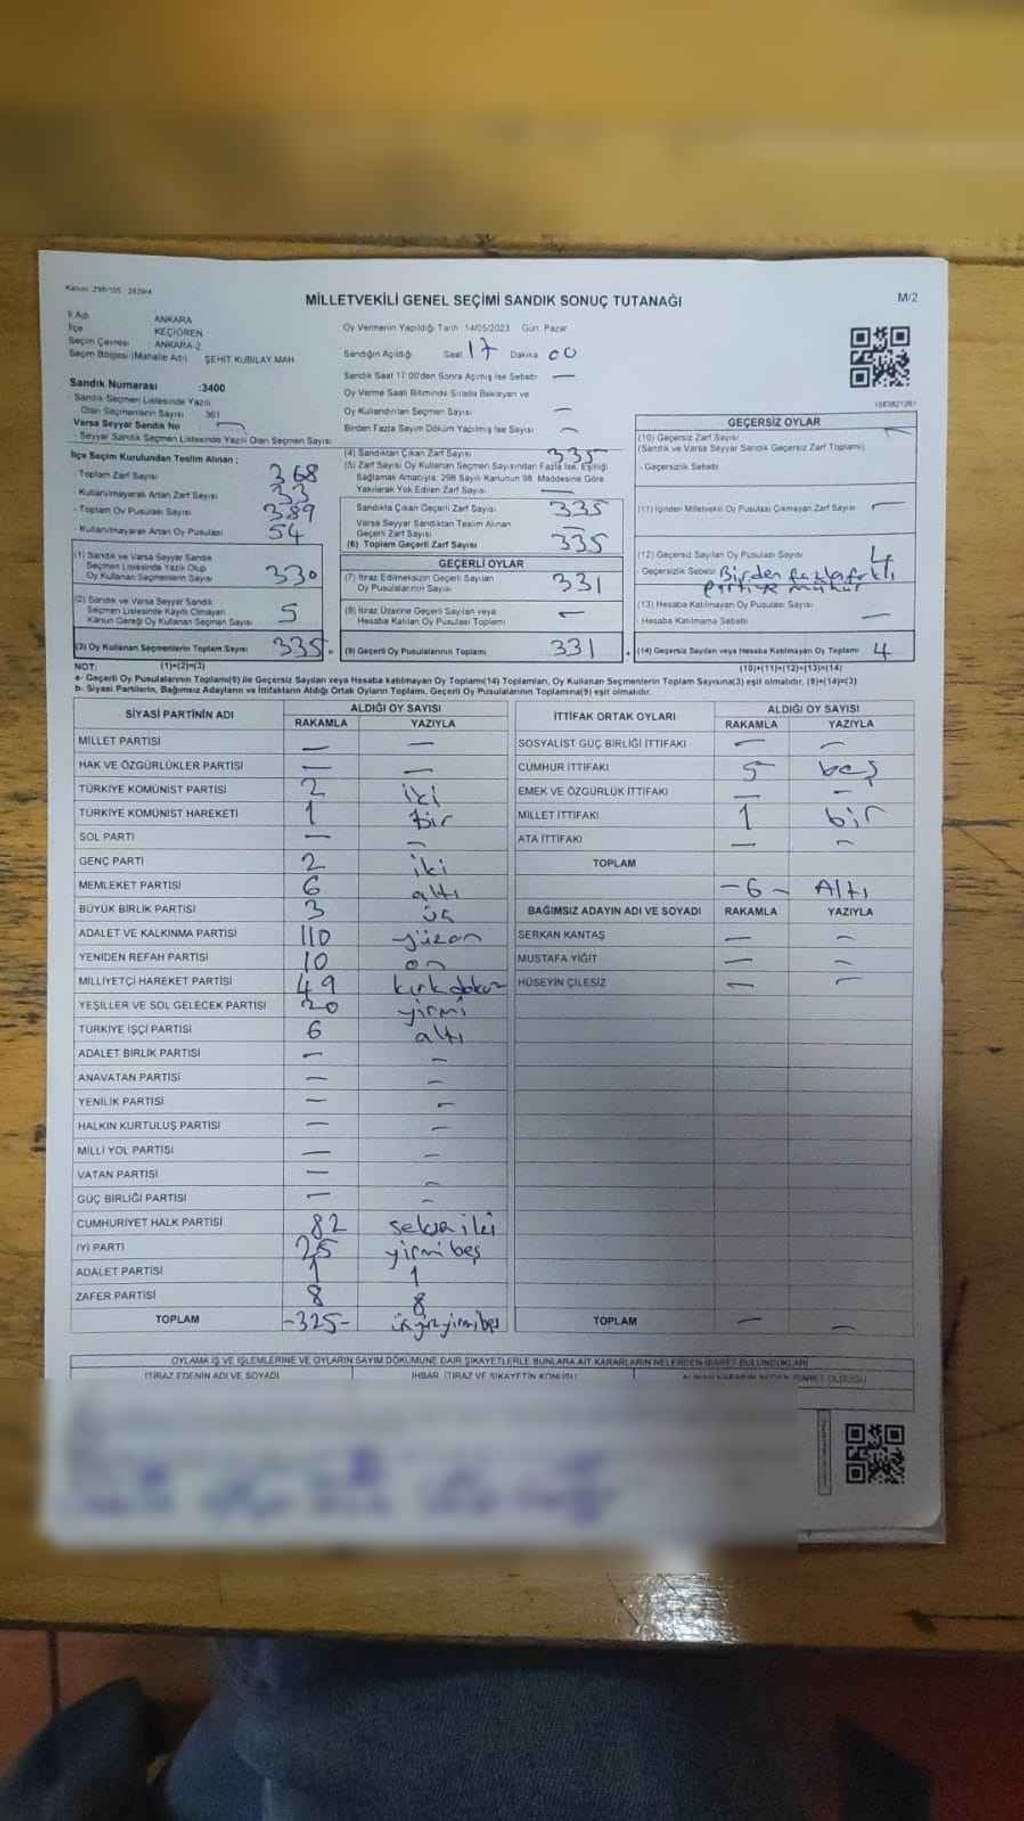 Kanun: 298/105
MİLLETVEKİLİ GENEL SEÇİMİ SANDIK SONUÇ TUTANAĞI
M/2
İl Adı ANKARA
İlçe KEÇİÖREN
Seçim Çevresi ANKARA-2
Seçim Bölgesi (Mahalle Adı) ŞEHİT KUBİLAY MAH
Sandık Numarası :3400
Sandık Seçmen Listesinde Yazılı
Olan Seçmenlerin Sayısı 361
Varsa Seyyar Sandık No —
Seyyar Sandık Seçmen Listesinde Yazılı Olan Seçmen Sayısı
İlçe Seçim Kurulundan Teslim Alınan ;
Toplam Zarf Sayısı 368
Kullanılmayarak Artan Zarf Sayısı 33
Toplam Oy Pusulası Sayısı 389
Kullanılmayarak Artan Oy Pusulası 54
(1) Sandık ve Varsa Seyyar Sandık
Seçmen Listesinde Yazılı Olup
Oy Kullanan Seçmenlerin Sayısı 330
(2) Sandık ve Varsa Seyyar Sandık
Seçmen Listesinde Kayıtlı Olmayan
Kanun Gereği Oy Kullanan Seçmen Sayısı 5
(3) Oy Kullanan Seçmenlerin Toplam Sayısı 335
Oy Vermenin Yapıldığı Tarih 14/05/2023 Gün: Pazar
Sandığın Açıldığı Saat 17 Dakika 00
Sandık Saat 17:00'den Sonra Açılmış İse Sebebi —
Oy Verme Saati Bitiminde Sırada Bekleyen ve
Oy Kullandırılan Seçmen Sayısı —
Birden Fazla Sayım Döküm Yapılmış İse Sayısı —
(4) Sandıktan Çıkan Zarf Sayısı 335
(5) Zarf Sayısı Oy Kullanan Seçmen Sayısından Fazla İse, Eşitliği
Sağlamak Amacıyla; 298 Sayılı Kanunun 98. Maddesine Göre
Yakılarak Yok Edilen Zarf Sayısı —
Sandıkta Çıkan Geçerli Zarf Sayısı 335
Varsa Seyyar Sandıktan Teslim Alınan
Geçerli Zarf Sayısı —
(6) Toplam Geçerli Zarf Sayısı 335
GEÇERLİ OYLAR
(7) İtiraz Edilmeksizin Geçerli Sayılan
Oy Pusulalarının Sayısı 331
(8) İtiraz Üzerine Geçerli Sayılan veya
Hesaba Katılan Oy Pusulası Toplamı —
(9) Geçerli Oy Pusulalarının Toplamı 331
GEÇERSİZ OYLAR
(10) Geçersiz Zarf Sayısı —
(Sandık ve Varsa Seyyar Sandık Geçersiz Zarf Toplamı)
Geçersizlik Sebebi
(11) İçinden Milletvekili Oy Pusulası Çıkmayan Zarf Sayısı —
(12) Geçersiz Sayılan Oy Pusulası Sayısı 4
Geçersizlik Sebebi Birden fazla farklı
partiye mühür
(13) Hesaba Katılmayan Oy Pusulası Sayısı —
Hesaba Katılmama Sebebi
(14) Geçersiz Sayılan veya Hesaba Katılmayan Oy Toplamı 4
NOT: (1)+(2)=(3)
(10)+(11)+(12)+(13)=(14)
a- Geçerli Oy Pusulalarının Toplamı(9) ile Geçersiz Sayılan veya Hesaba katılmayan Oy Toplamı(14) Toplamları, Oy Kullanan Seçmenlerin Toplam Sayısına(3) eşit olmalıdır. (9)+(14)=(3)
b- Siyasi Partilerin, Bağımsız Adayların ve İttifakların Aldığı Ortak Oyların Toplamı, Geçerli Oy Pusulalarının Toplamına(9) eşit olmalıdır.
SİYASİ PARTİNİN ADI ALDIĞI OY SAYISI
RAKAMLA YAZIYLA
MİLLET PARTİSİ — —
HAK VE ÖZGÜRLÜKLER PARTİSİ — —
TÜRKİYE KOMÜNİST PARTİSİ 2 iki
TÜRKİYE KOMÜNİST HAREKETİ 1 Bir
SOL PARTİ — —
GENÇ PARTİ 2 iki
MEMLEKET PARTİSİ 6 altı
BÜYÜK BİRLİK PARTİSİ 3 üç
ADALET VE KALKINMA PARTİSİ 110 yüzon
YENİDEN REFAH PARTİSİ 10 on
MİLLİYETÇİ HAREKET PARTİSİ 49 kırkdokuz
YEŞİLLER VE SOL GELECEK PARTİSİ 20 yirmi
TÜRKİYE İŞÇİ PARTİSİ 6 altı
ADALET BİRLİK PARTİSİ — —
ANAVATAN PARTİSİ — —
YENİLİK PARTİSİ — —
HALKIN KURTULUŞ PARTİSİ — —
MİLLİ YOL PARTİSİ — —
VATAN PARTİSİ — —
GÜÇ BİRLİĞİ PARTİSİ — —
CUMHURİYET HALK PARTİSİ 82 seksen iki
İYİ PARTİ 25 yirmi beş
ADALET PARTİSİ 1 1
ZAFER PARTİSİ 8 8
TOPLAM -325- üçyüzyirmibeş
İTTİFAK ORTAK OYLARI ALDIĞI OY SAYISI
RAKAMLA YAZIYLA
SOSYALİST GÜÇ BİRLİĞİ İTTİFAKI — —
CUMHUR İTTİFAKI 5 beş
EMEK VE ÖZGÜRLÜK İTTİFAKI — —
MİLLET İTTİFAKI 1 bir
ATA İTTİFAKI — —
TOPLAM -6- Altı
BAĞIMSIZ ADAYIN ADI VE SOYADI RAKAMLA YAZIYLA
SERKAN KANTAŞ — —
MUSTAFA YİĞİT — —
HÜSEYİN ÇİLESİZ — —
TOPLAM — —
OYLAMA İŞ VE İŞLEMLERİNE VE OYLARIN SAYIM DÖKÜMÜNE DAİR ŞİKAYETLERLE BUNLARA AİT KARARLARIN NELERDEN İBARET BULUNDUKLARI
İTİRAZ EDENİN ADI VE SOYADI İHBAR, İTİRAZ VE ŞİKAYETİN KONUSU